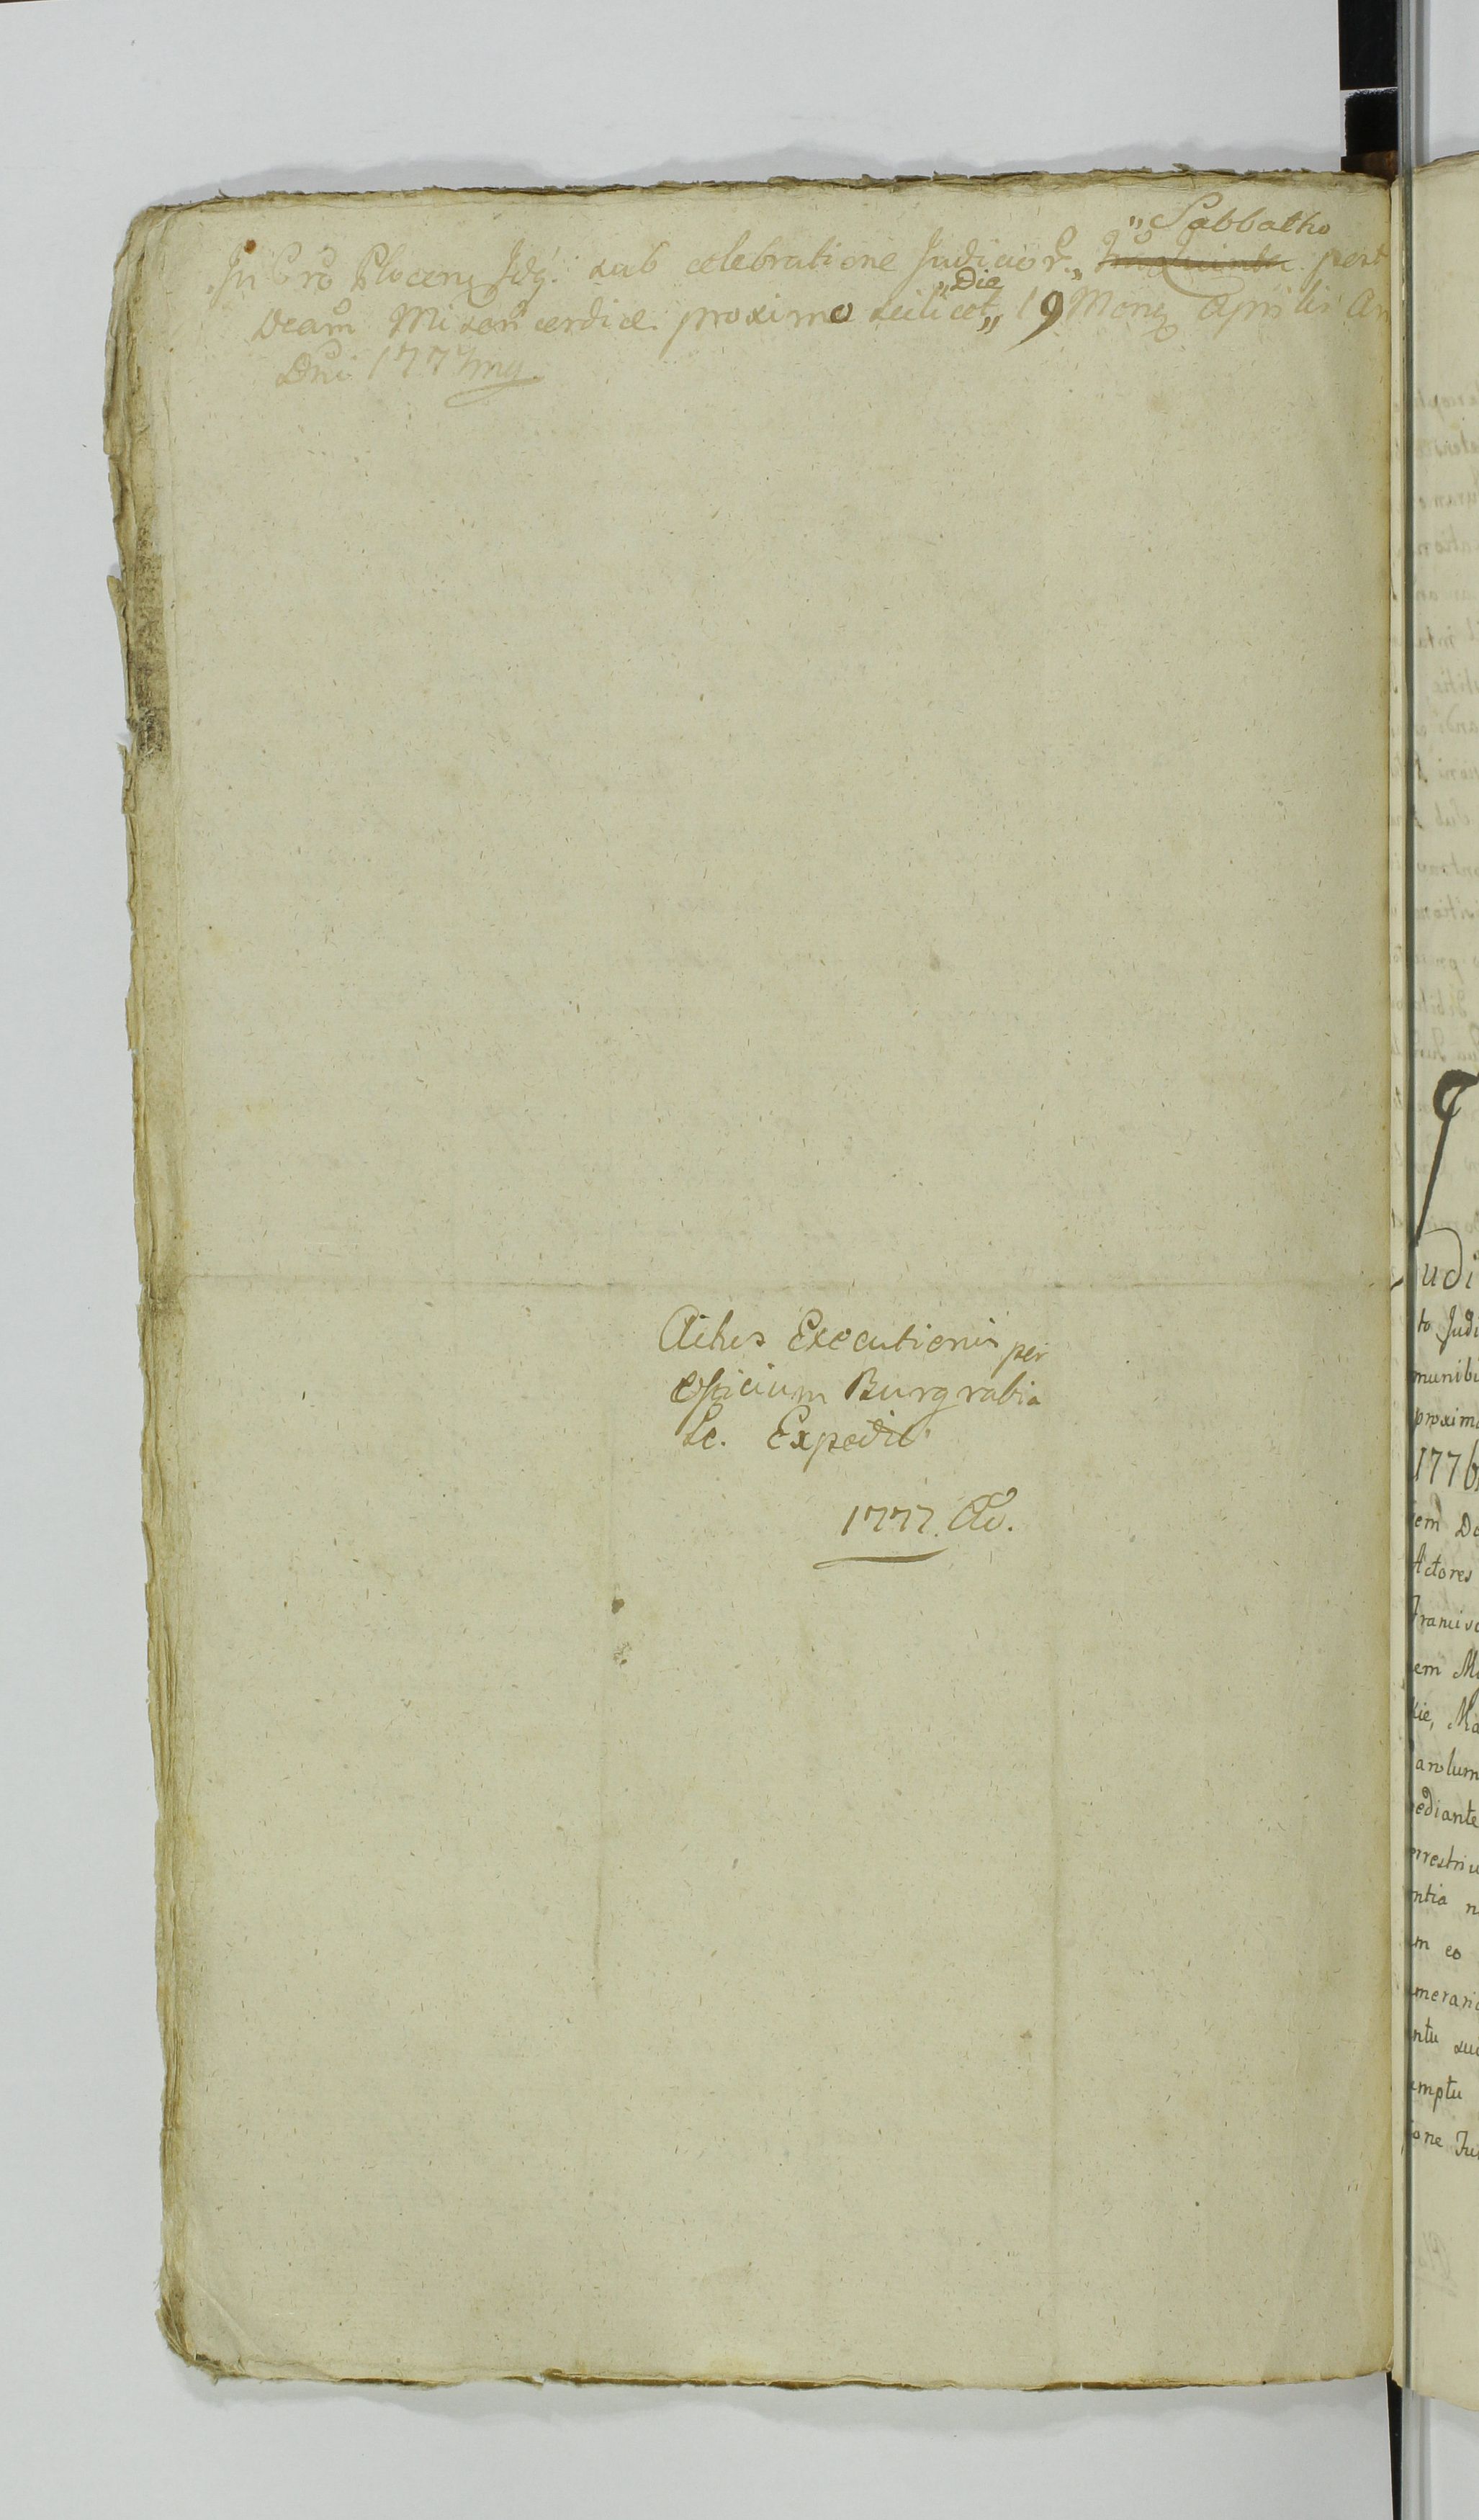 „Sabbatho
In Cro Plocen Idq. sub celebratione Judicior. „ ~~Fria Quinta~~ post
„Die
Dcam Misericordiæ proximo scilicet „ 19 Mens Aprilis An
Dni 1777mo.
Actus Executionis per
Officium Burgrabia
Le. Expedit
1777. Ao.
udi
to Judi
munibu
proxima
1776
em Do
Actores
Francisc
em Ma
kie, Ma
arolum
ediante
errestriu
ntia n
m eo
merario
ntu sui
umptu
one Jur